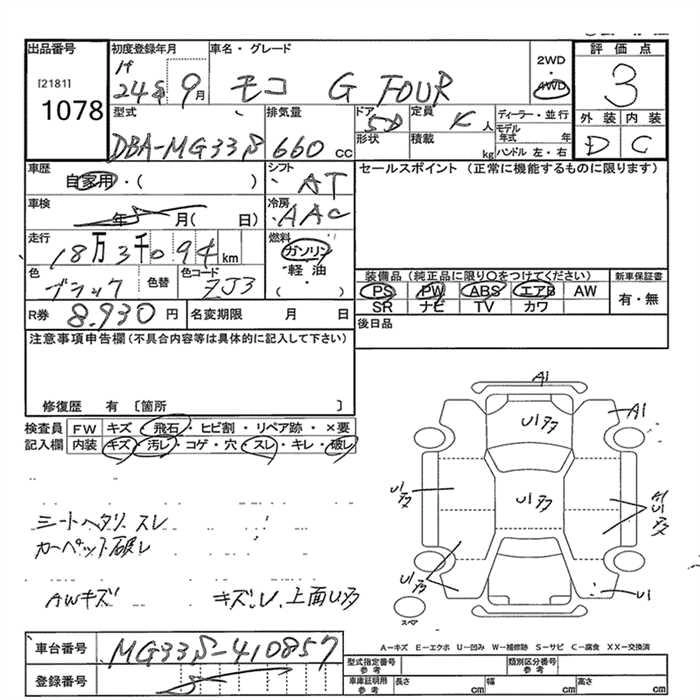 出品番号
[2181]
1078
初度登録年月
24年 9月
車名・グレード
モコ G FOUR
2WD
・
4WD
評価点
3
外装 内装
D C
型式
DBA-MG33S
排気量
660 cc
ドア
5D
形状
定員
人
積載
kg
ディーラー・並行
モデル年式 年
ハンドル 左・右
車歴
自家用・( )
シフト
AT
セールスポイント (正常に機能するものに限ります)
車検
年 月( 日)
冷房
AAC
走行
18万3千094km
燃料
ガソリン
軽油
( )
色
ブラック
色替
色コード
ZJ3
装備品 (純正品に限り○をつけてください)
PS PW ABS エアB AW
SR ナビ TV カワ
新車保証書
有・無
R券
8,930円
名変期限 月 日
後日品
注意事項申告欄(不具合内容等は具体的に記入して下さい)
修復歴 有 〔箇所 〕
検査員記入欄
FW キズ・飛石・ヒビ割・リペア跡・×要
内装 キズ・汚レ・コゲ・穴・スレ・キレ・破レ
シートヘタリ スレ
カーペット破レ
AWキズ
上面U多
A1
A1
U1多
U1多
U1多
A1
U1
U1多
U1
スペア
A-キズ E-エクボ U-凹み W-補修跡 S-サビ C-腐食 XX-交換済
車台番号
MG33S-410857
登録番号
型式指定番号
参考
類別区分番号
参考
車庫証明用
参考
長さ cm
幅 cm
高さ cm